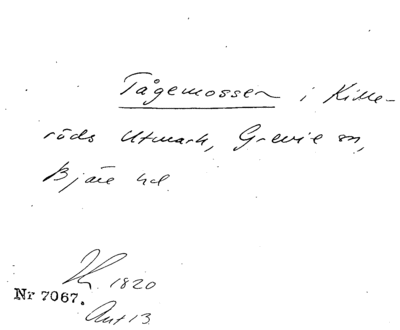 Tågemossen i Kille-
röds Utmark, Grevie sn,
Bjäre hd
1820
Nr 7067.
Ant 13